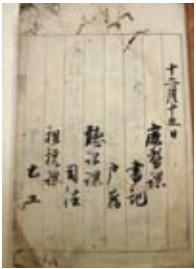 十二月十五日
庶務課
書記
戸籍
聴訟課
司法
租税課
土工